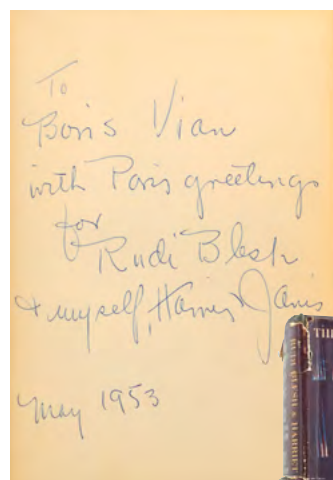 To
Boris Vian
with Paris greetings
for
Rudi Blesh
& myself, Harriet Janis
May 1953
THE
RUDI BLESH & HARRIET